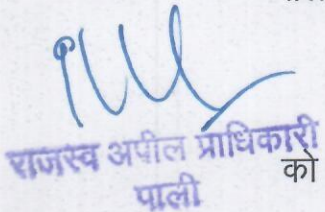 राजस्व अपील प्राधिकारी
पाली
को